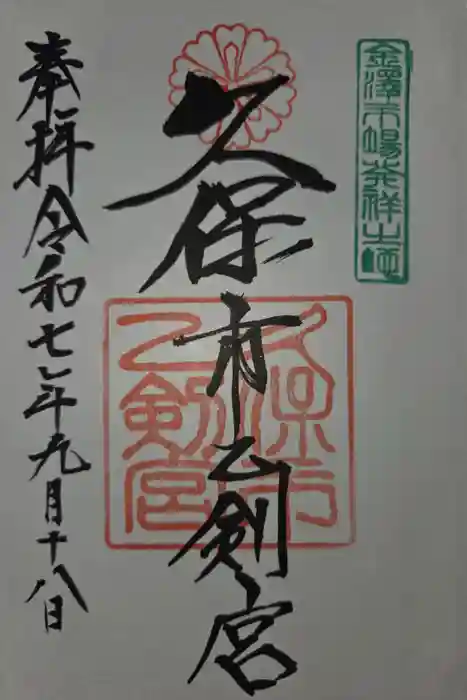 金澤市場発祥之地
久保市乙剣宮
久保市
乙剣宮
奉拝令和七年九月十八日